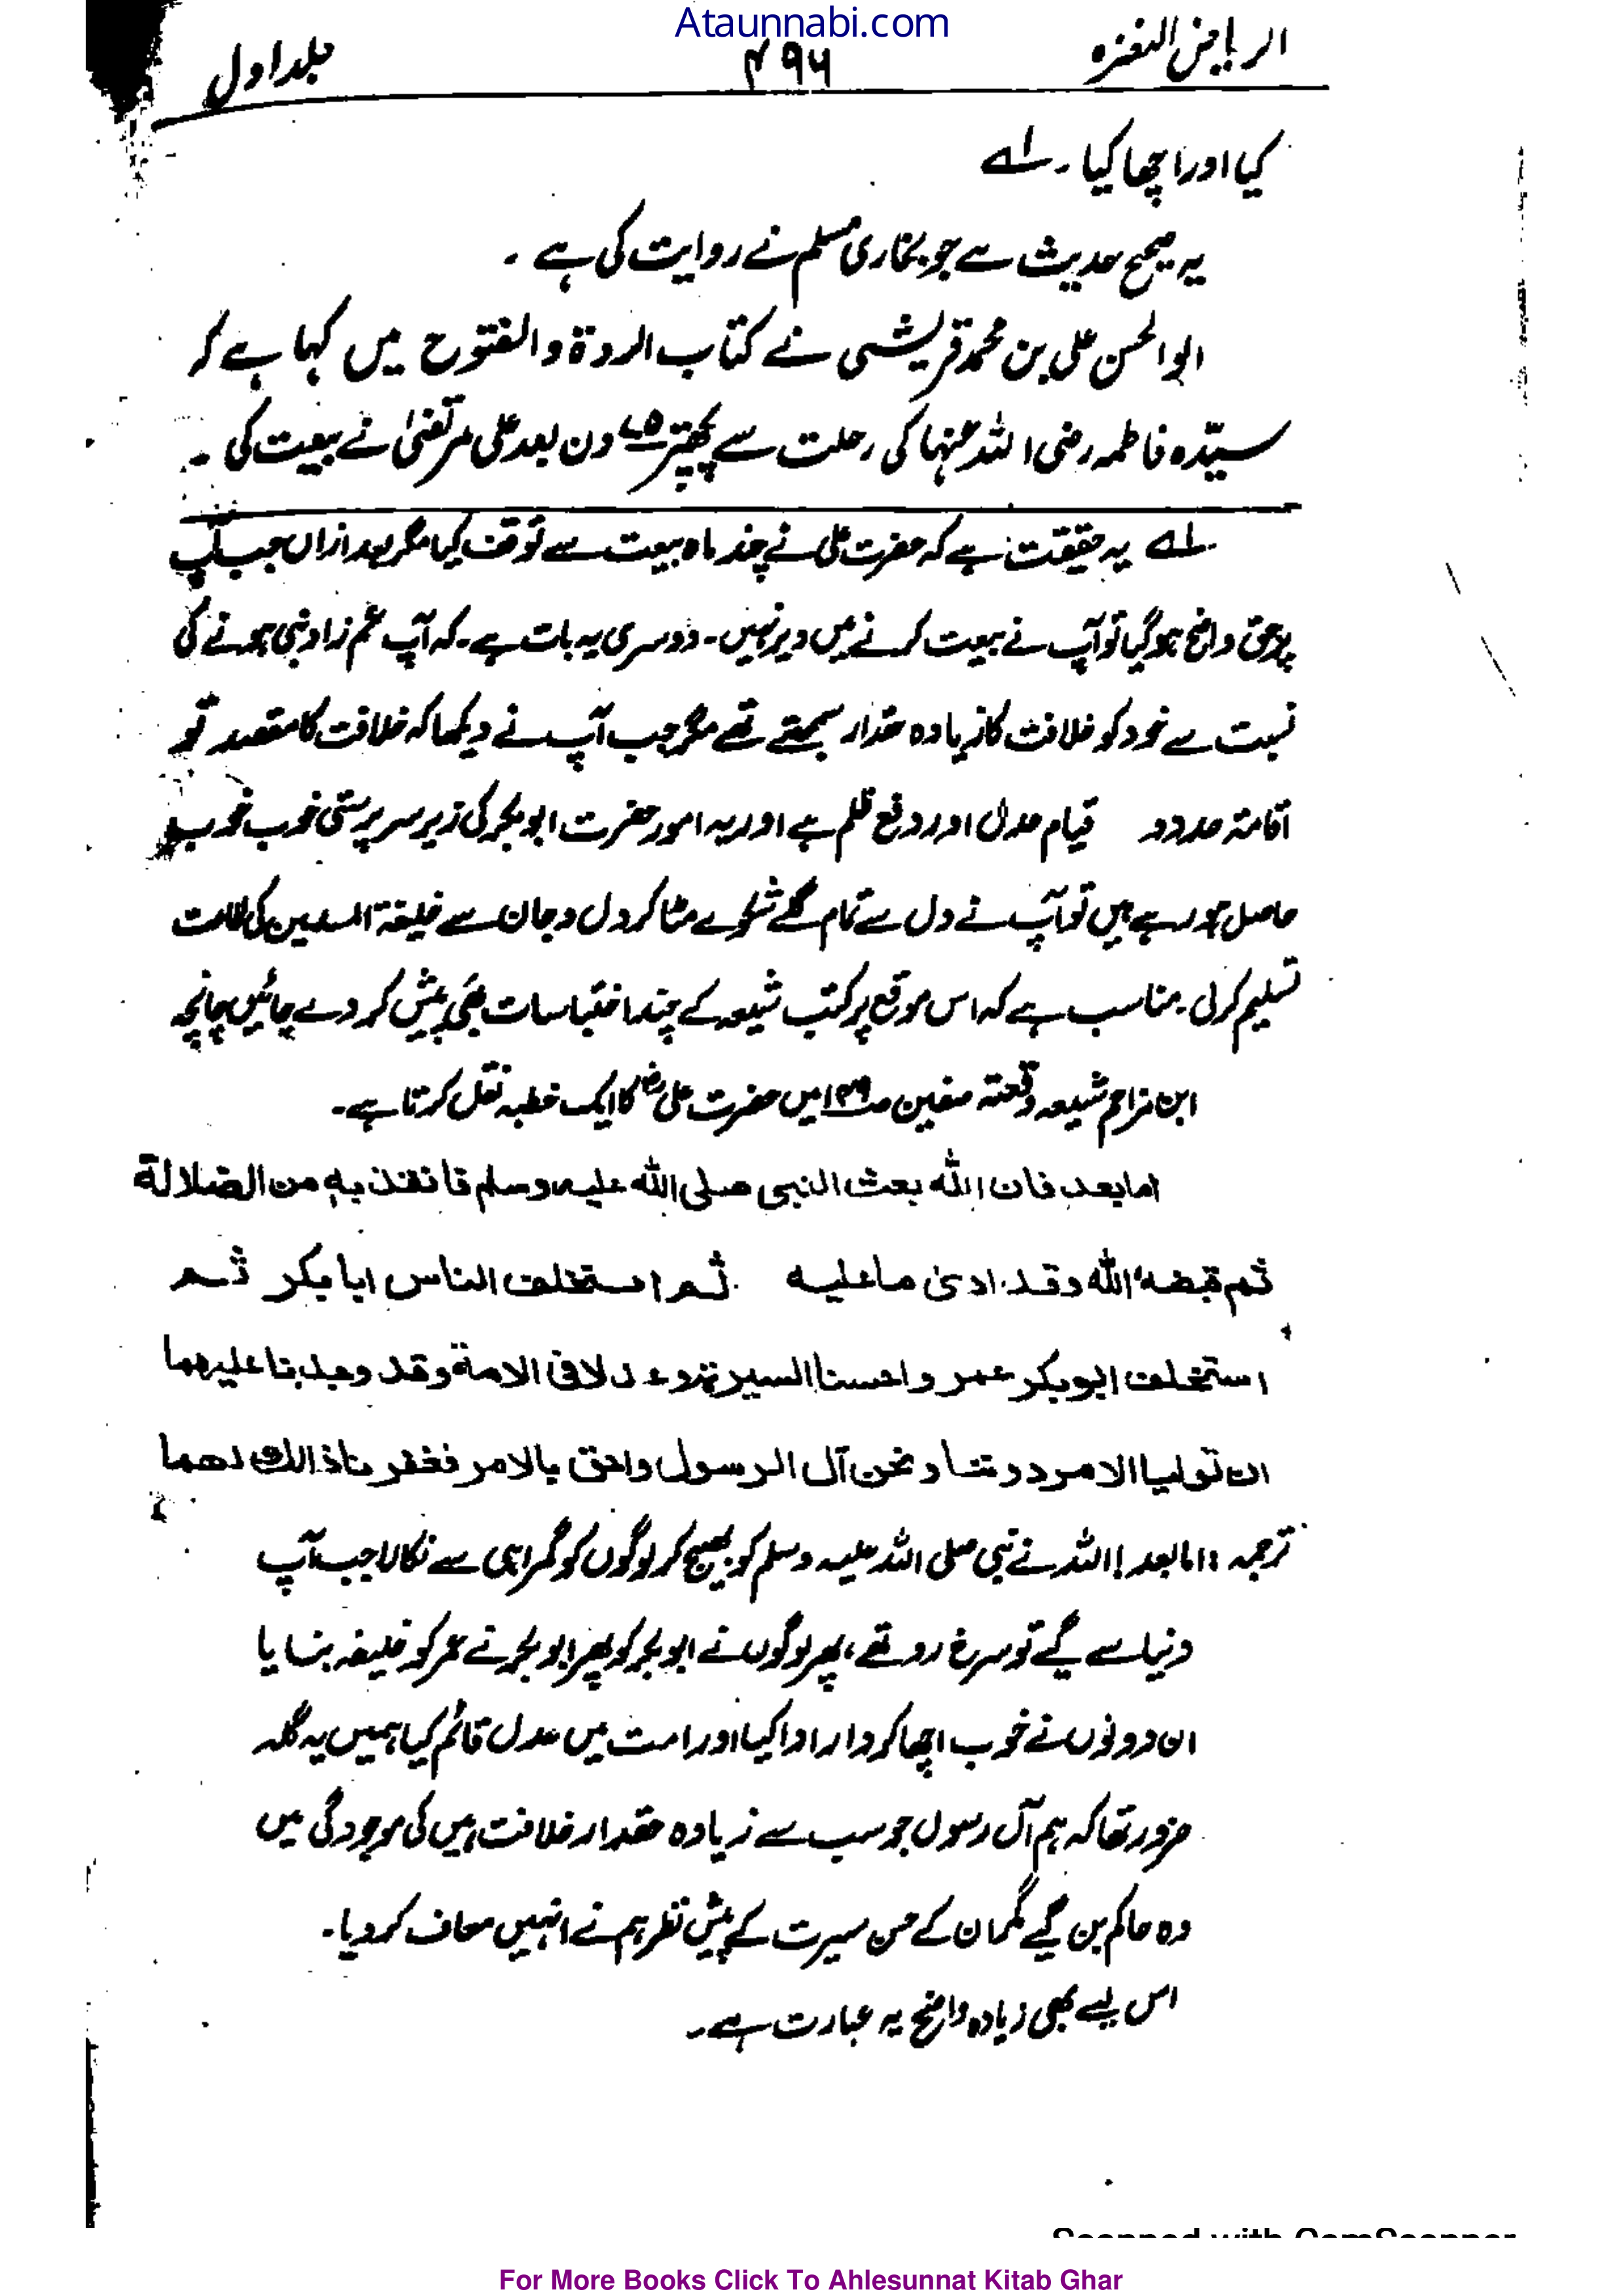 Ataunnabi.com
الریاض النضرہ ۴۹۶ جلد اول
کیا اور اچھا کیا۔ لے
یہ صحیح حدیث ہے جو بخاری مسلم نے روایت کی ہے ۔
ابوالحسن علی بن محمد قریشی نے کتاب الردۃ والفتوح میں کہا ہے کہ
سیّدہ فاطمہ رضی اللہ عنہا کی رحلت سے پچھتر ۷۵ دن بعد علی مرتضیٰ نے بیعت کی ۔
لے یہ حقیقت ہے کہ حضرت علی نے چند ماہ بیعت سے توقف کیا مگر بعد ازاں جب آپ
پر حق واضح ہوگیا تو آپ نے بیعت کرنے میں دیر نہیں۔ دوسری یہ بات ہے۔ کہ آپ عم زاد نبی ہونے کی
نسبت سے خود کو خلافت کا زیادہ حقدار سمجھتے تھے مگر جب آپ نے دیکھا کہ خلافت کا مقصد تو
اقامۃ حدود قیام عدل اور دفع ظلم ہے اور یہ امور حضرت ابوبکر کی زیر سرپرستی خوب خوب
حاصل ہو رہے ہیں تو آپ نے دل سے تمام گلے شکوے مٹا کر دل و جان سے خلیفۃ المسلمین کی طاعت
تسلیم کر لی۔ مناسب ہے کہ اس موقع پر کتب شیعہ کے چند اقتباسات بھی پیش کر دے جائیں چنانچہ
ابن مزاحم شیعہ وقعتہ صفین ص۱۴۹ میں حضرت علیؓ کا ایک خطبہ نقل کرتا ہے۔
امابعد فان اللہ بعث النبی صلی اللہ علیہ وسلم فانقذ بہ من الضلالۃ
ثم قبضہ اللہ وقد ادیٰ ماعلیہ ثم استخلف الناس ابابکر ثم
استخلف ابوبکر عمر واحسنا السیرۃ وعدلا فی الامۃ وقد وجدنا علیھما
ان تولیا الامر دوننا ونحن آل الرسول واحق بالامر فغفرنا ذالک لھما
ترجمہ :۔ امابعد! اللہ نے نبی صلی اللہ علیہ وسلم کو بھیج کر لوگوں کو گمراہی سے نکالا جب آپ
دنیا سے گیے تو سرخ رو تھے، پھر لوگوں نے ابوبکر کو پھر ابوبکر نے عمر کو خلیفہ بنایا
ان دونوں نے خوب اچھا کردار ادا کیا اور امت میں عدل قائم کیا ہمیں یہ گلہ
ضرور تھا کہ ہم آل رسول جو سب سے زیادہ حقدار خلافت ہیں کی موجودگی میں
وہ حاکم بن گیے مگر ان کے حسن سیرت کے پیش نظر ہم نے انہیں معاف کر دیا۔
اس سے بھی زیادہ واضح یہ عبارت ہے۔
Scanned with CamScanner
For More Books Click To Ahlesunnat Kitab Ghar